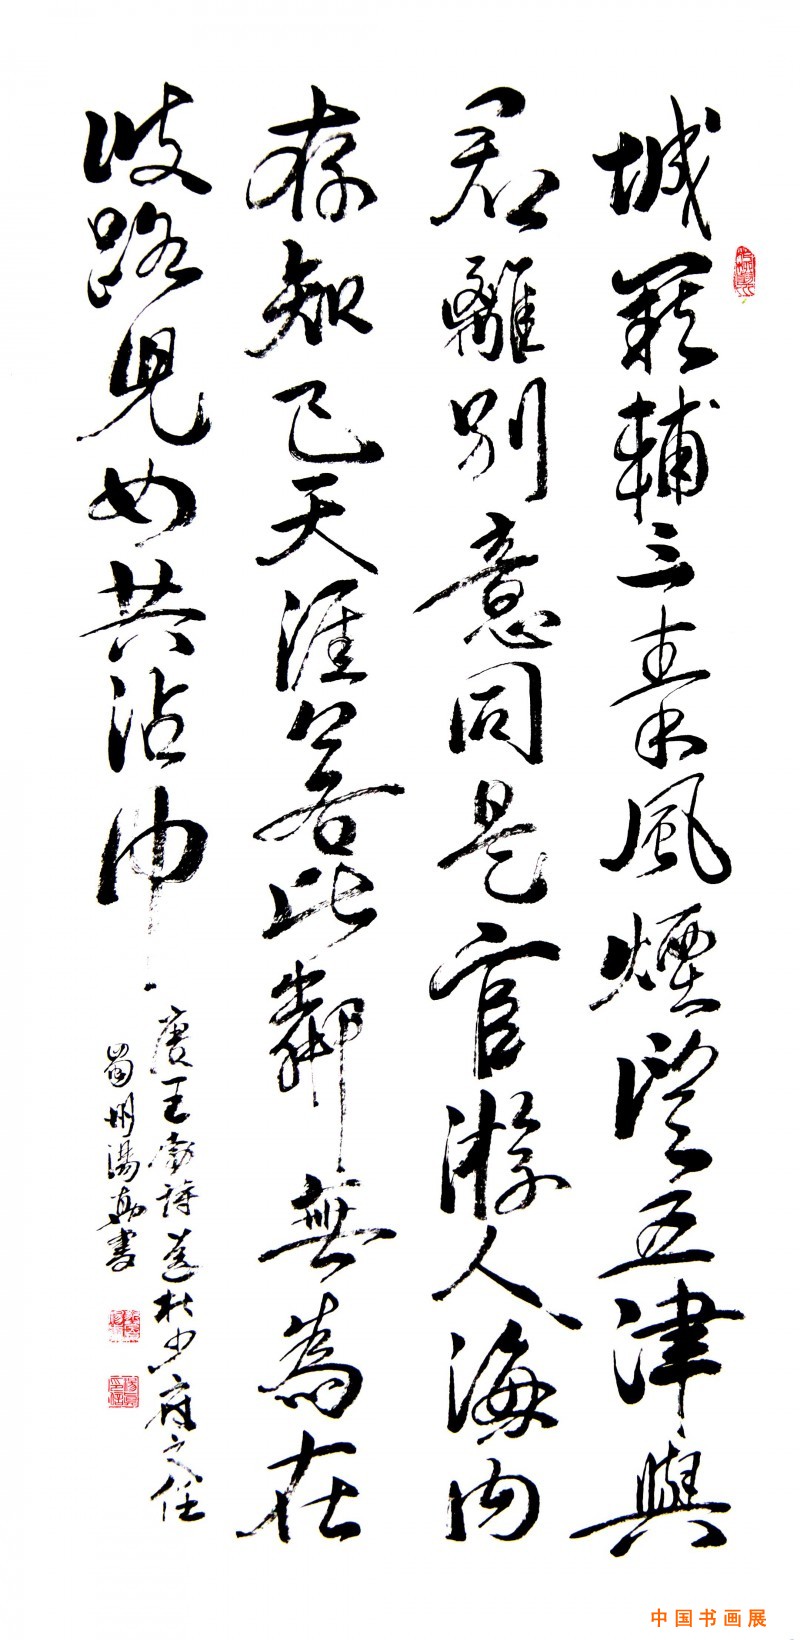 城闕輔三秦風煙望五津與
君離別意同是宦游人海内
存知己天涯若比鄰無為在
歧路兒女共沾巾
唐王勃詩送杜少府之任
蜀州湯書
中国书画展